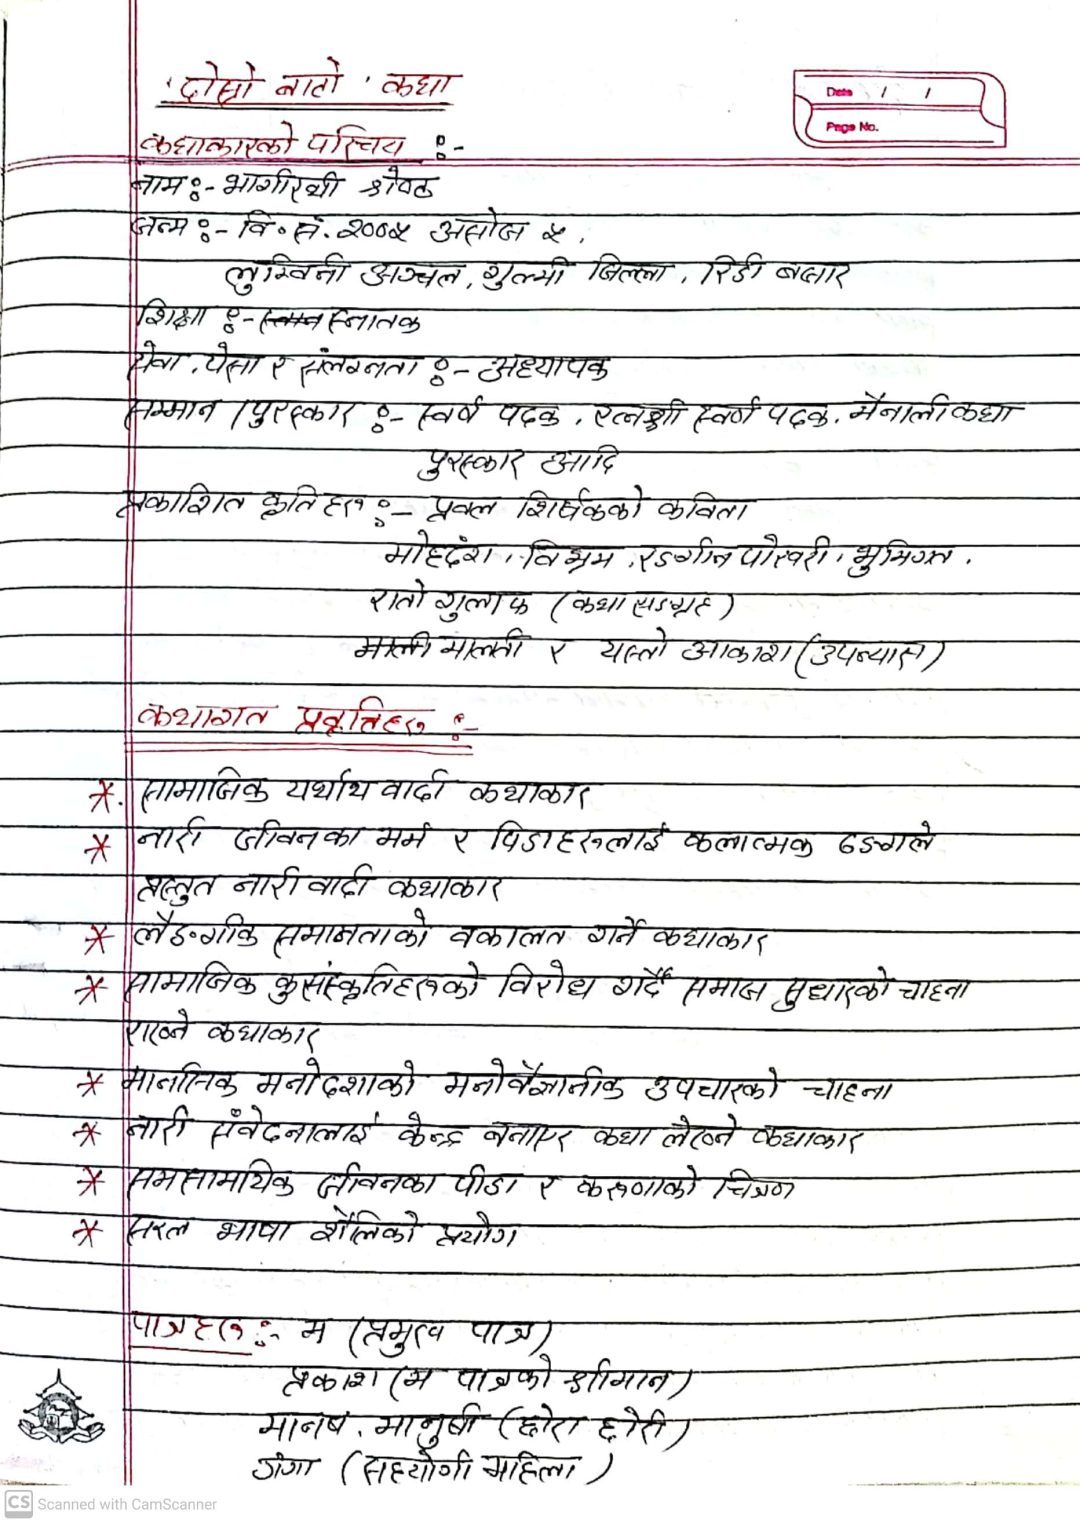 'दोस्रो बाटो' कथा
Date / /
Page No.
कथाकारको परिचय :-
नाम :- भागीरथी श्रेष्ठ
जन्म :- वि.सं. २००५ असोज ५,
लुम्विनी अञ्चल, गुल्मी जिल्ला, रिडी बजार
शिक्षा :- स्नातक
सेवा, पेसा र संलग्नता :- अध्यापक
सम्मान / पुरस्कार :- स्वर्ण पदक, रत्नश्री स्वर्ण पदक, मैनाली कथा
पुरस्कार आदि
प्रकाशित कृतिहरू :- प्रवल शिर्षकको कविता
मोहदंश, विभ्रम, रङगीन पोखरी, भुमिगत,
रातो गुलाफ (कथा सङग्रह)
मालती र यस्तो आकाश (उपन्यास)
कथागत प्रवृत्तिहरू :-
* सामाजिक यर्थाथवादी कथाकार
* नारी जीवनका मर्म र पिडाहरूलाई कलात्मक ढङ्गले
प्रस्तुत नारीवादी कथाकार
* लैङगीक समानताको वकालत गर्ने कथाकार
* सामाजिक कुसंस्कृतिहरूको विरोध गर्दै समाज सुधारको चाहना
राख्ने कथाकार
* मानसिक मनोदशाको मनोवैज्ञानीक उपचारको चाहना
* नारी संवेदनालाई केन्द्र बनाएर कथा लेख्ने कथाकार
* समसामयिक जीवनका पीडा र करुणाको चित्रण
* सरल भाषा शैलिको प्रयोग
पात्रहरू :- म (प्रमुख पात्र)
प्रकाश (म पात्रको श्रीमान)
मानष, मानुषी (छोरा छोरी)
गंगा (सहयोगी महिला)
CS Scanned with CamScanner